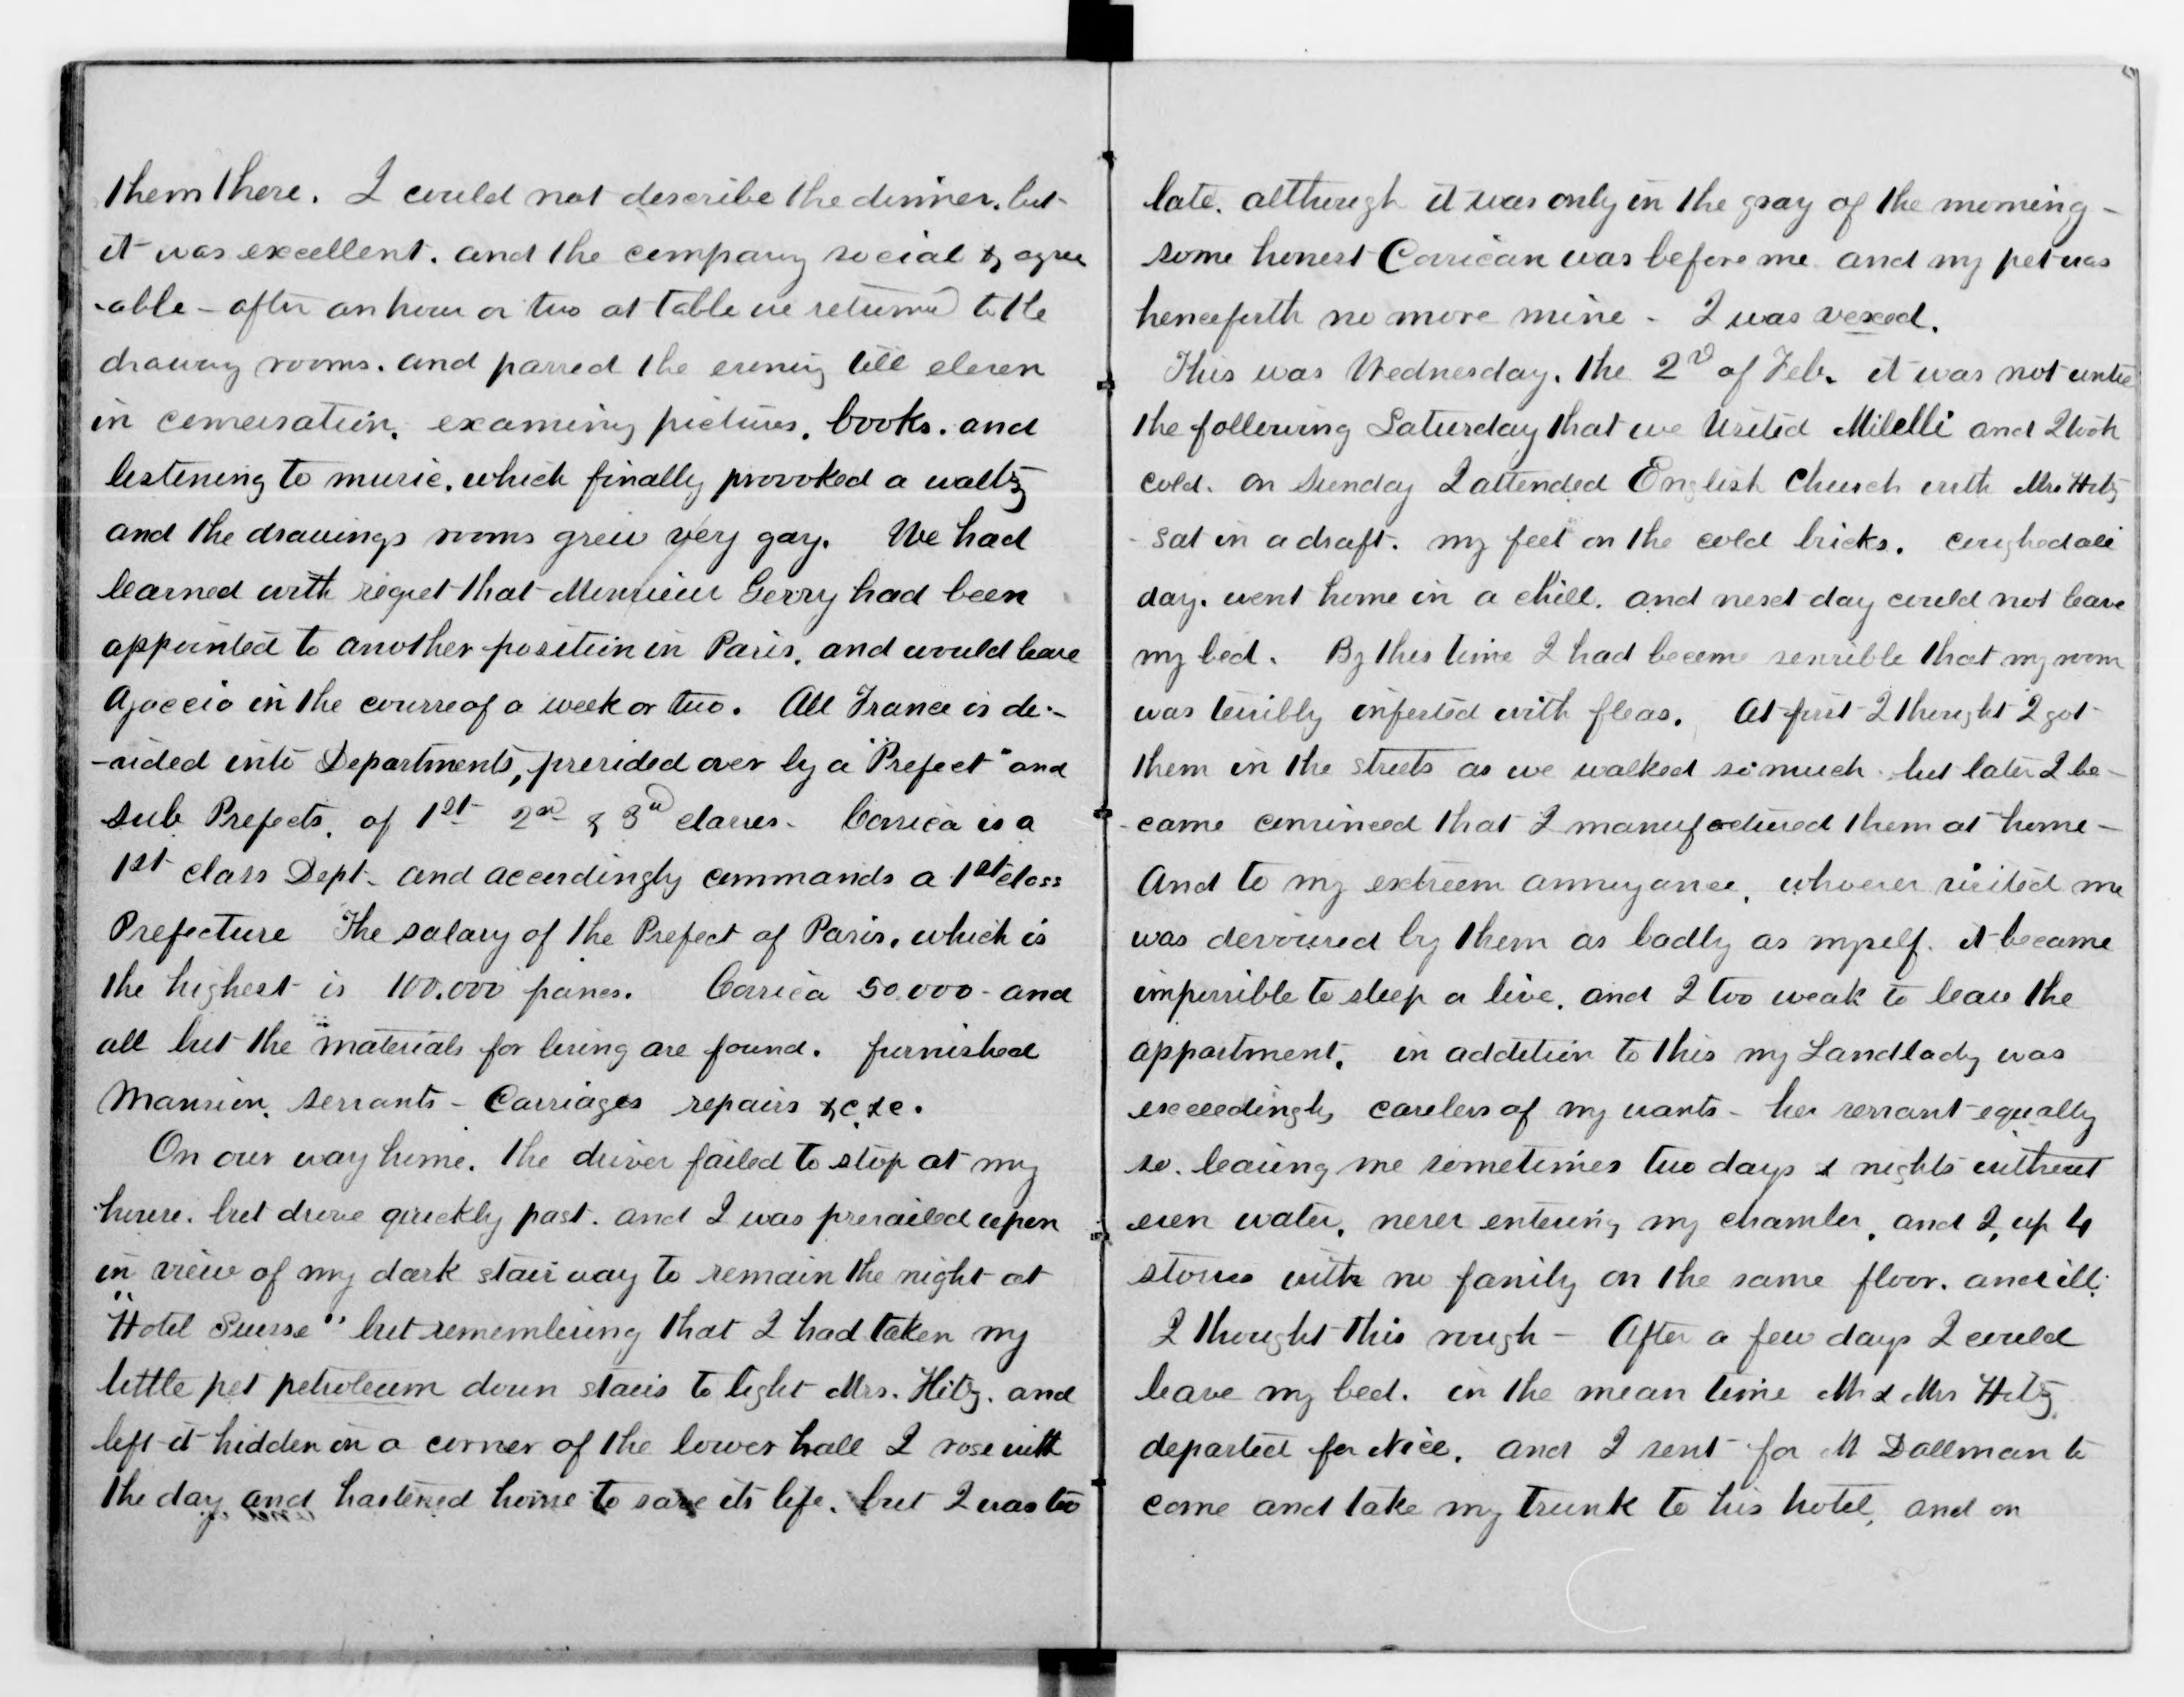 them there. I could not describe the dinner, but
it was excellent. and the company social & agree
-able - after an hour or two at table we returned to the
drawing rooms. and passed the evening till eleven
in conversation, examining pictures, books. and
listening to music. which finally provoked a waltz
and the drawings rooms grew very gay. We had
learned with regret that Monsieur Gerry had been
appointed to another position in Paris, and would leave
Ajaccio in the course of a week or two. All France is de-
-vided into Departments, presided over by a "Prefect" and
sub Prefects, of 1st 2nd & 3d classes - Corsica is a
1st class Dept. and accordingly commands a 1st class
Prefecture The salary of the Prefect of Paris, which is
the highest is 100.000 francs. Corsica 50.000 - and
all but the materials for living are found. furnished
Mansion, servants - Carriages repairs &c &c.
On our way home. the driver failed to stop at my
house. but drove quickly past. and I was prevailed upon
in view of my dark stair way to remain the night at
"Hotel Suisse" but remembering that I had taken my
little pet petroleum down stairs to light Mrs. Hitz. and
left it hidden in a corner of the lower hall I rose with
the day and hastened home to save its life. but I was too
late. although it was only in the gray of the morning -
some honest Corsican was before me and my pet was
henceforth no more mine - I was vexed.
This was Wednesday. the 2d of Feb. it was not until
the following Saturday that we visited Milelli and I took
cold. on Sunday I attended English Church with Mrs Hitz
- sat in a draft. my feet on the cold bricks. coughed all
day. went home in a chill. and next day could not leave
my bed. By this time I had become sensible that my room
was terribly infested with fleas. At first I thought I got
them in the streets as we walked so much. but later I be-
-came convinced that I manufactured them at home -
And to my extreem annoyance, whoever visited me
was devoured by them as badly as myself. it became
impossible to sleep or live, and I too weak to leave the
appartment, in addition to this my Landlady was
exceedingly careless of my wants - her servant equally
so. leaving me sometimes two days & nights without
even water, never entering my chamber, and I, up 4
stories with no family on the same floor. and ill.
I thought this rough - After a few days I could
leave my bed. in the mean time Mr & Mrs Hitz
departed for Nice. and I sent for M Dallman to
come and take my trunk to his hotel, and on